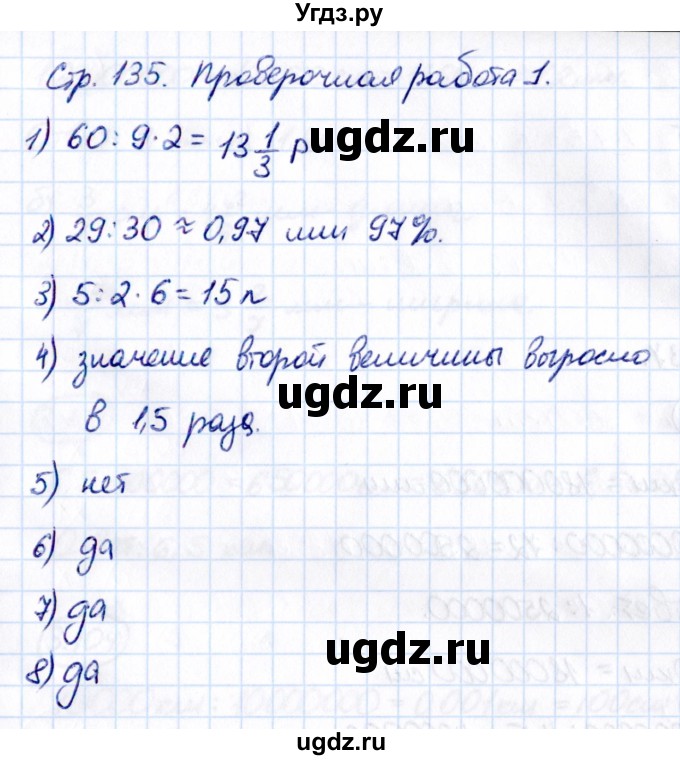 Угдз.ру
Стр. 135. Проверочная работа 1.
1) 60 : 9 · 2 = 13 1/3 р
ugdz.ru
2) 29 : 30 ≈ 0,97 или 97%.
3) 5 : 2 · 6 = 15 л
4) значение второй величины выросло
ugdz.ru
в 1,5 раза.
5) нет
6) да
7) да
ugdz.ru
8) да
ugdz.ru